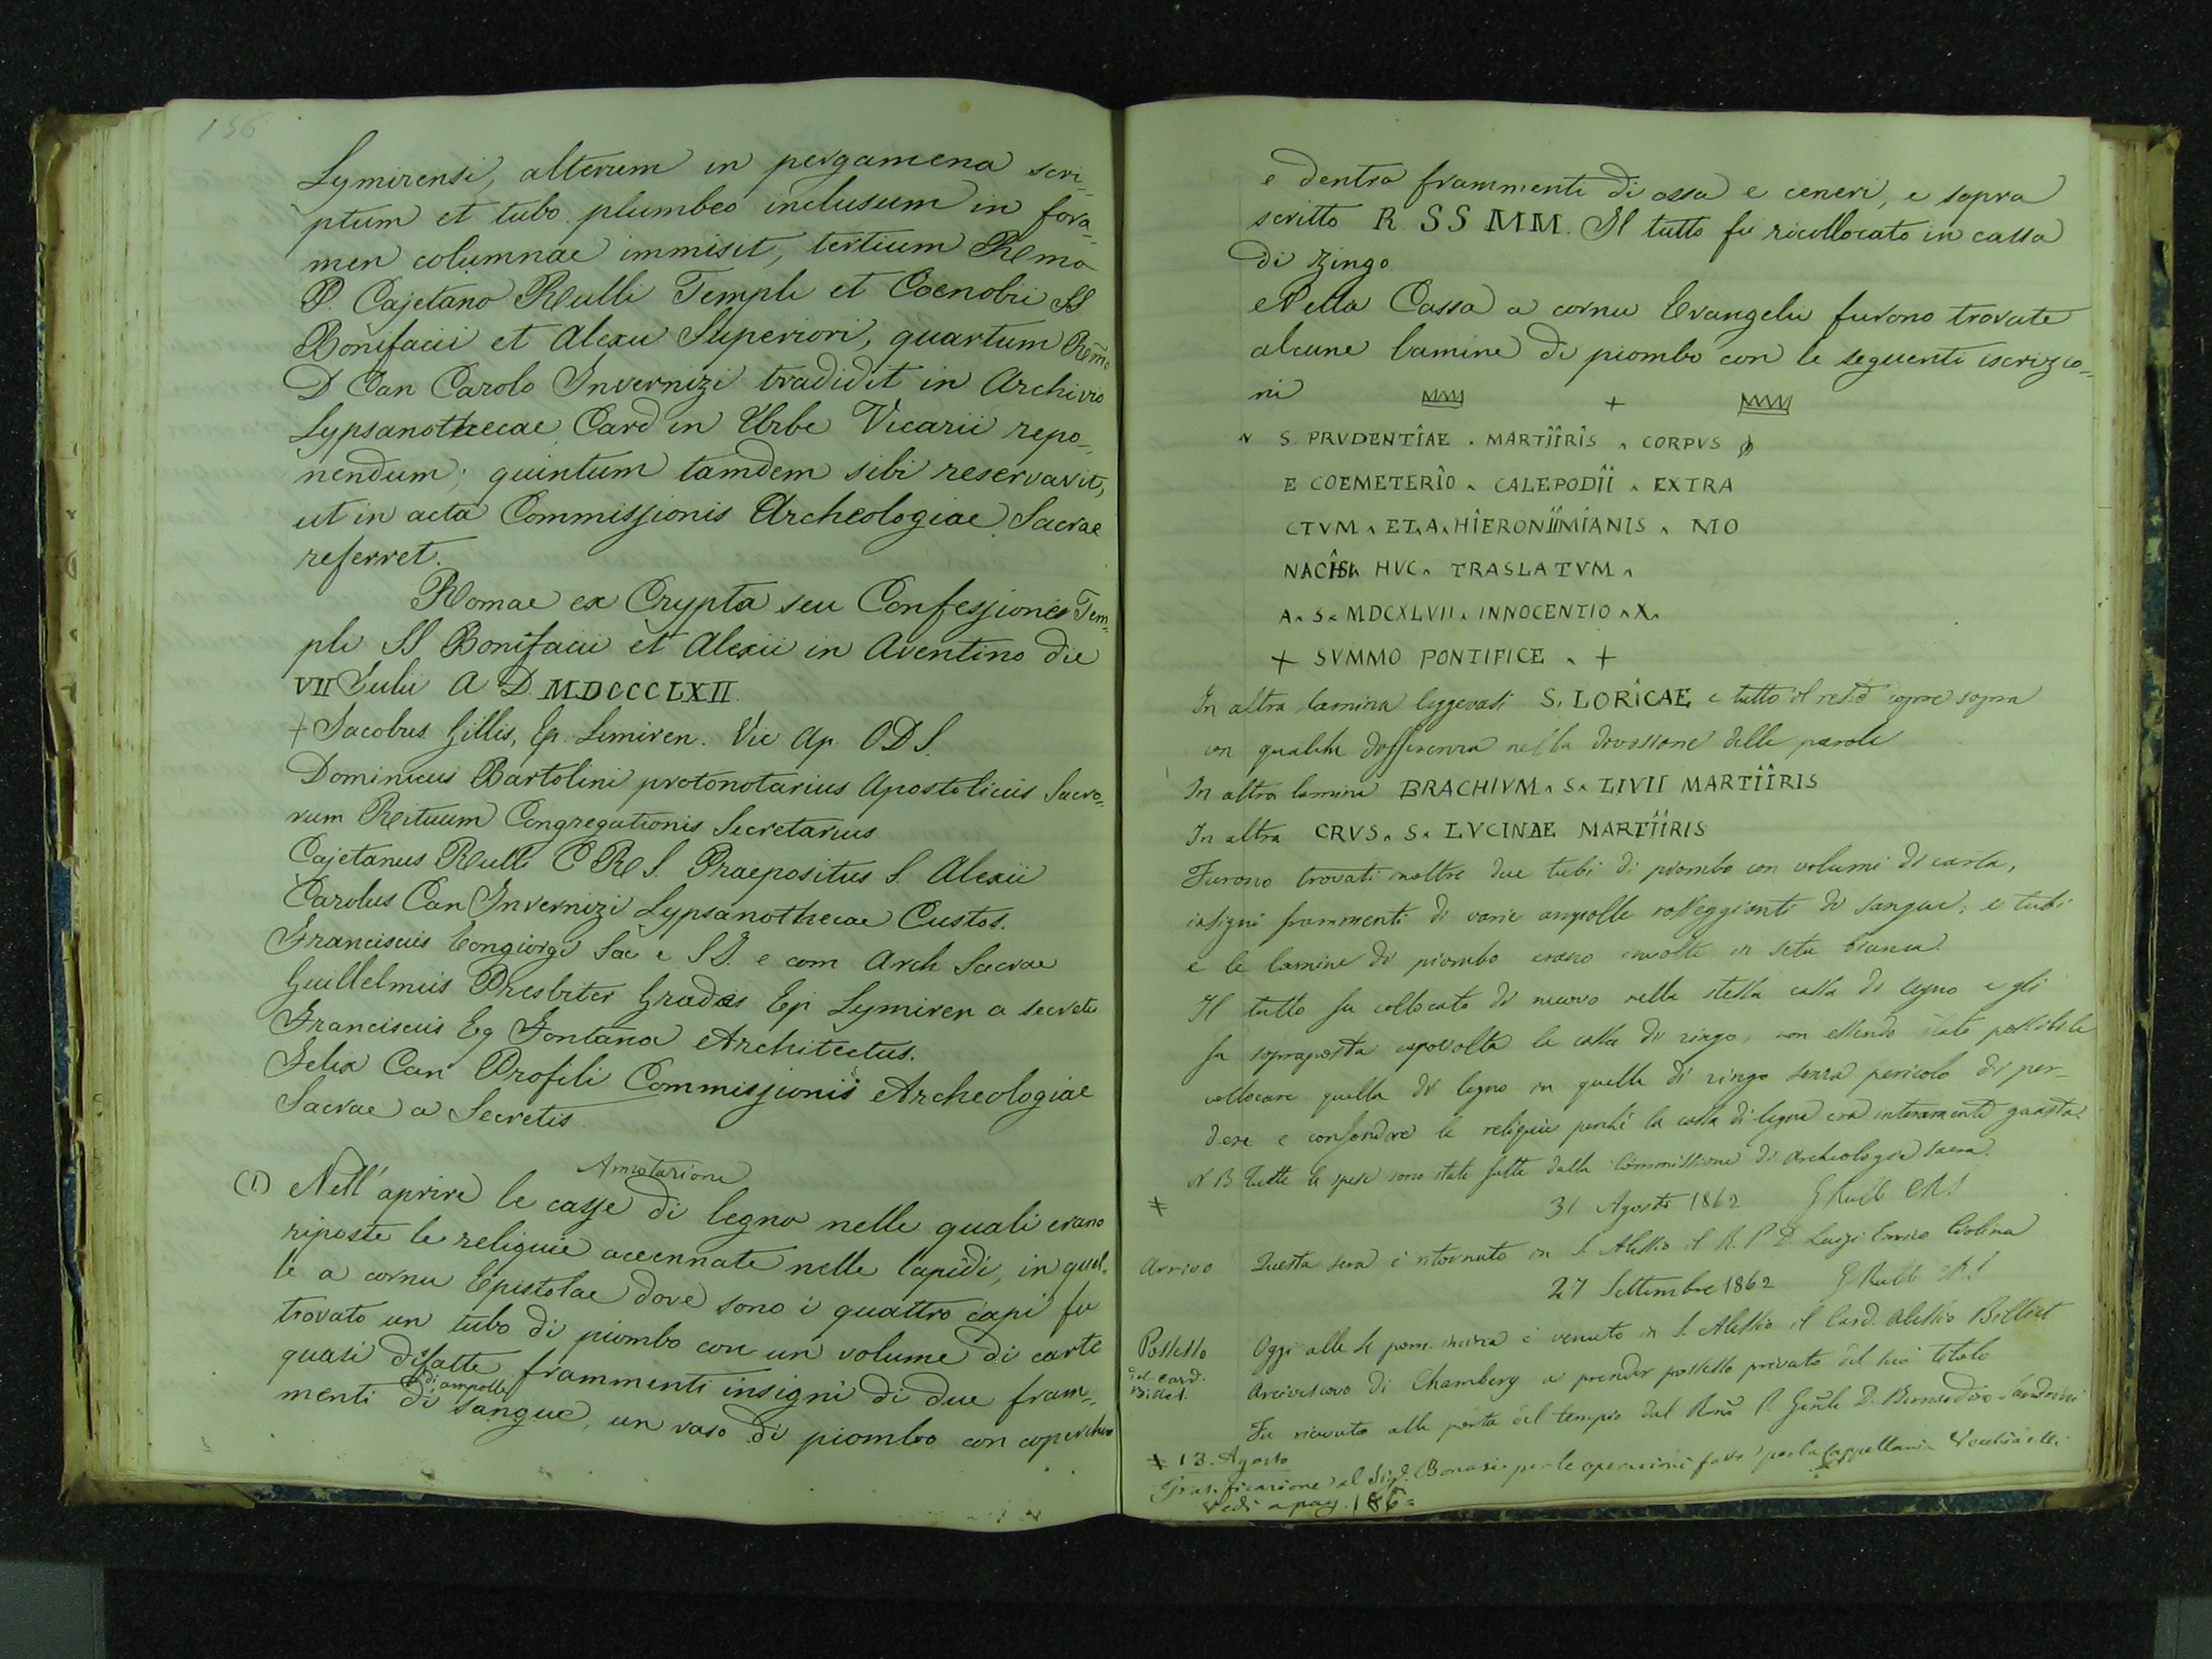 156
Lymirensi, alterum in pergamena scri-
ptum et tubo plumbeo inclusum in fora-
men columnae immisit, tertium Rmo
P. Cajetano Rulli Templi et Coenobii SS
Bonifacii et Alexii Superiori, quartum Rmo
D Can Carolo Invernizi tradidit in Archivio
Lypsanothecae Card in Urbe Vicarii repo-
nendum; quintum tamdem sibi reservavit,
ut in acta Commissionis Archeologiae Sacrae
referret.
Romae ex Crypta seu Confessionis Tem-
pli SS Bonifacii et Alexii in Aventino die
VII Julii A D. MDCCCLXII
+ Jacobus Gillis, Ep. Limiren. Vic Ap. ODS.
Dominicus Bartolini protonotarius Apostolicus Sacro-
rum Rituum Congregationis Secretarius
Cajetanus Rulli C R S. Praepositus S. Alexii
Carolus Can Invernizi Lypsanothecae Custos.
Franciscus Tongiorgi Sac e S J. e com Arch Sacrae
Guillelmus Presbiter Ep Lymiren a secretis
Franciscus Eq Fontana Architectus.
Felix Can Profili Commissionis Archeologiae
Sacrae a Secretis
Annotazione
(1) Nell'aprire le casse di legno nelle quali erano
riposte le reliquie accennate nelle lapidi, in quel-
le a cornu Epistolae dove sono i quattro capi fu
trovato un tubo di piombo con un volume di carte
quasi disfatte frammenti insigni di due fram-
di ampolle
menti di sangue, un vaso di piombo con coperchio
e dentro frammenti di ossa e ceneri, e sopra
scritto R SS MM. Il tutto fu ricollocato in cassa
di zingo
Nella Cassa a cornu Evangelii furono trovate
alcune lamine di piombo con le seguenti iscrizio-
ni +
S. PRVDENTÎAE . MARTÎÎRÎS . CORPVS
E COEMETERÎO . CALEPODÎÎ . EXTRA
CTVM . ET . A . HÎERONÎÎMÎANIS . MO
NACÎS HVC . TRASLATVM .
A . S . MDCXLVII . INNOCENTIO . X .
+ SVMMO PONTIFICE . +
In altra lamina leggevasi S. LORÎCAE e tutto il resto come sopra
con qualche differenza nella divisione delle parole
In altra lamina BRACHIVM . S . LIVII MARTÎÎRIS
In altra CRVS . S . LVCINAE MARTÎÎRIS
Furono trovati inoltre due tubi di piombo con volumi di carta,
insigni frammenti di varie ampolle rosseggianti di sangue: e tubi
e le lamine di piombo erano involte in seta bianca.
Il tutto fu collocato di nuovo nella stessa cassa di legno e gli
fu soprapposta capovolta la cassa di zingo, non essendo stato possibile
collocare quella di legno in quella di zingo senza pericolo di per-
dere e confondere le reliquie perché la cassa di legno era interamente guasta.
N B Tutte le spese sono state fatte dalla Commissione di Archeologia sacra.
≠ 31 Agosto 1862 G Rulli CRS
Arrivo Questa sera è ritornato in S. Alessio il R. P. D. Luigi Enrico
27 Settembre 1862 G Rulli CRS
Possesso Oggi alle 4 pom. è venuto in S. Alessio il Card. Alessio Billiet
del Card. Billiet. Arcivescovo di Chambery a prender possesso privato del suo titolo
Fu ricevuto alla porta del tempio dal Rmo P. Gñle D. Bernardino Sandrini
≠ 13. Agosto
Gratificazione al Sigr. Bonasi per le operazioni fatte per la Cappellania
Vedi a pag. 186=